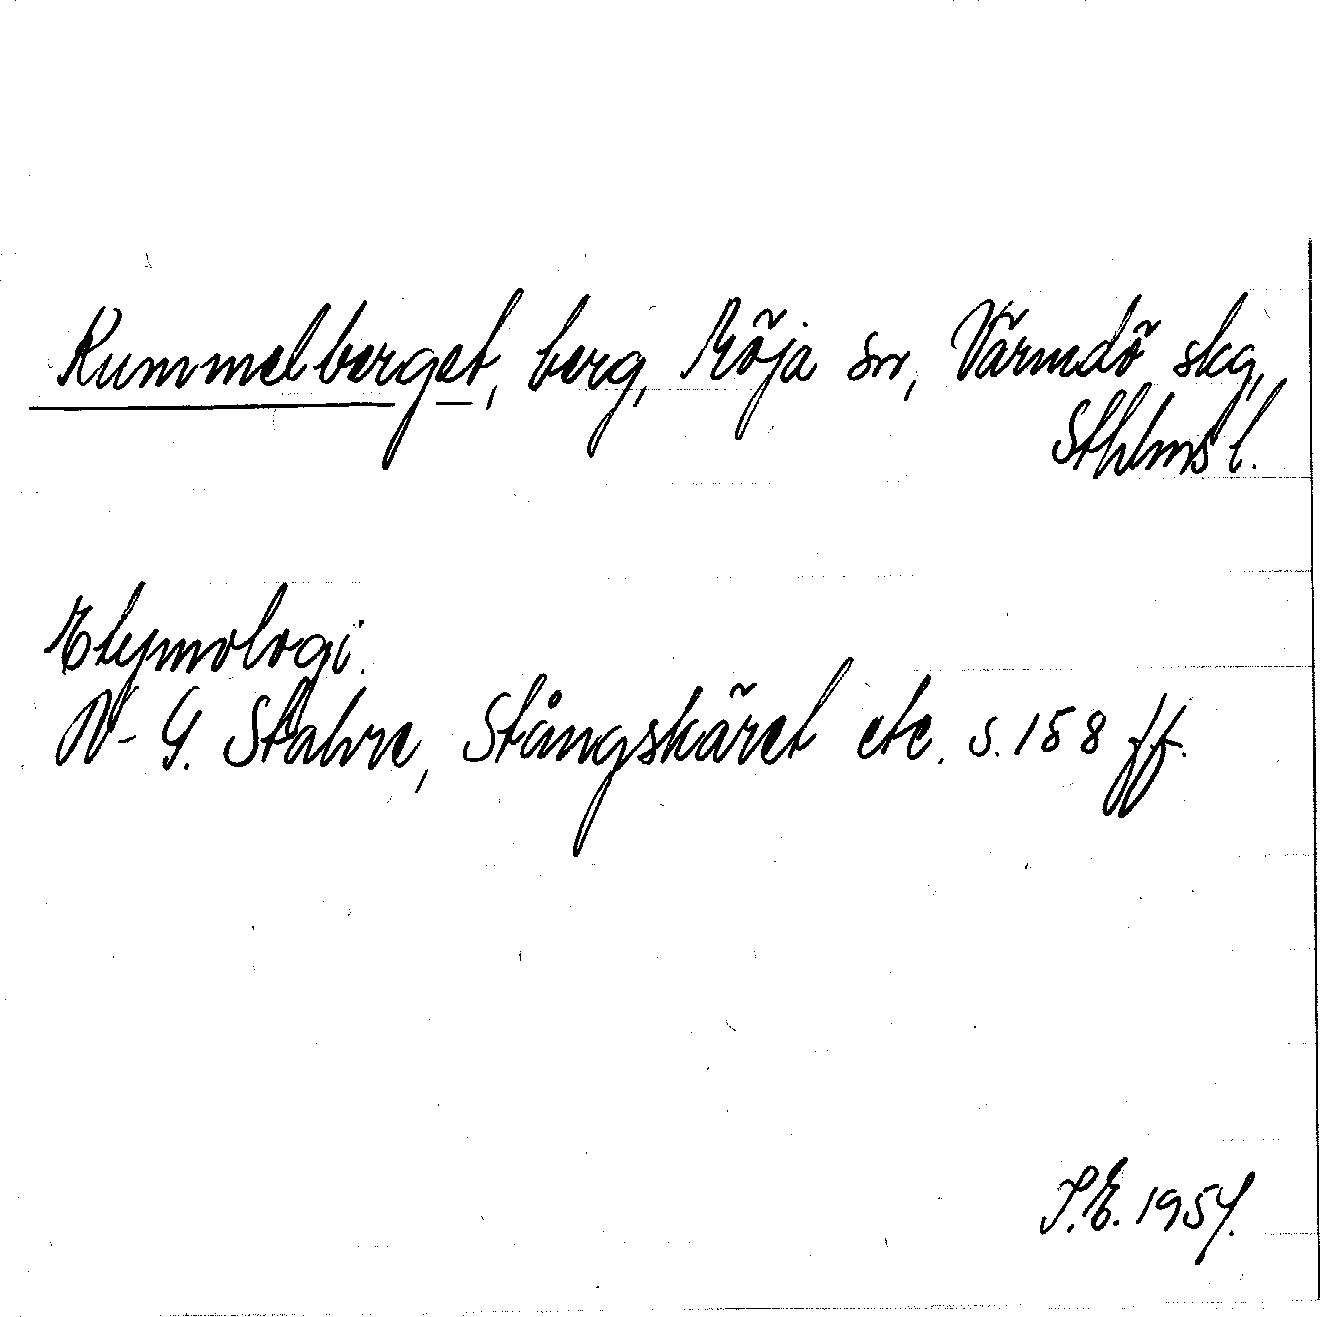 Rummelberget, berg, Möja sn, Värmdö skg,
Sthlms l.
Etymologi.
N-G. Stahre, Stångskäret etc. s. 158 ff.
S.E. 1957.